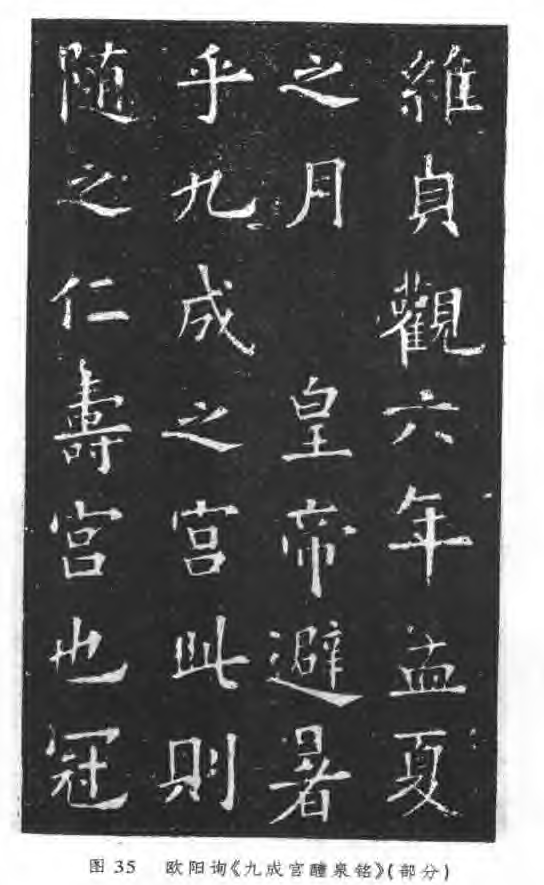 維貞觀六年孟夏
之月 皇帝避暑
乎九成之宮此則
随之仁壽宮也冠
图 35 欧阳询《九成宫醴泉铭》(部分)